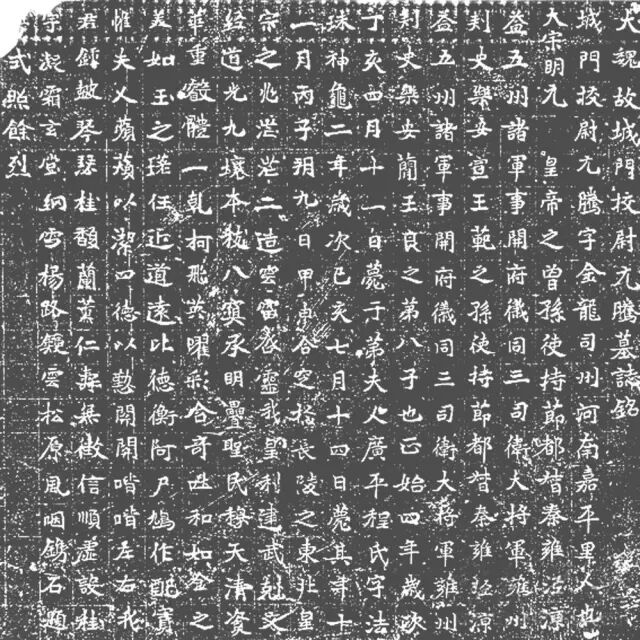 大魏故城門校尉元騰墓誌銘
城門校尉元騰字金龍司州河南嘉平里人也
太宗明元 皇帝之曾孫使持節都督秦雍涇涼
益五州諸軍事開府儀同三司衛大將軍雍州
刺史樂安宣王範之孫使持節都督秦雍涇涼
益五州諸軍事開府儀同三司衛大將軍雍州
刺史樂安簡王良之第八子也正始四年歲次
丁亥四月十一日薨于第夫人廣平程氏字法
珠神龜二年歲次己亥七月十四日薨其年十
一月丙子朔九日甲申合窆於長陵之東北皇
宗之兆茫茫二造雲雷啟靈我皇利建武剋文
經道光九壤本枝八寞承明疊聖民穆天清資
華重敬體一乹柯飛英曜彩含奇挺和如金之
美如玉之瑳任近道遠比德衡阿尸鳩作配寔
惟夫人蘋蘩以潔四德以懃開開喈喈左右我
君鏗鼓琴瑟桂馥蘭薰仁壽無徵信順虛設桂
宇凝霜玄堂網雪楊路鏡雲松原風咽鐫石題
式照餘烈